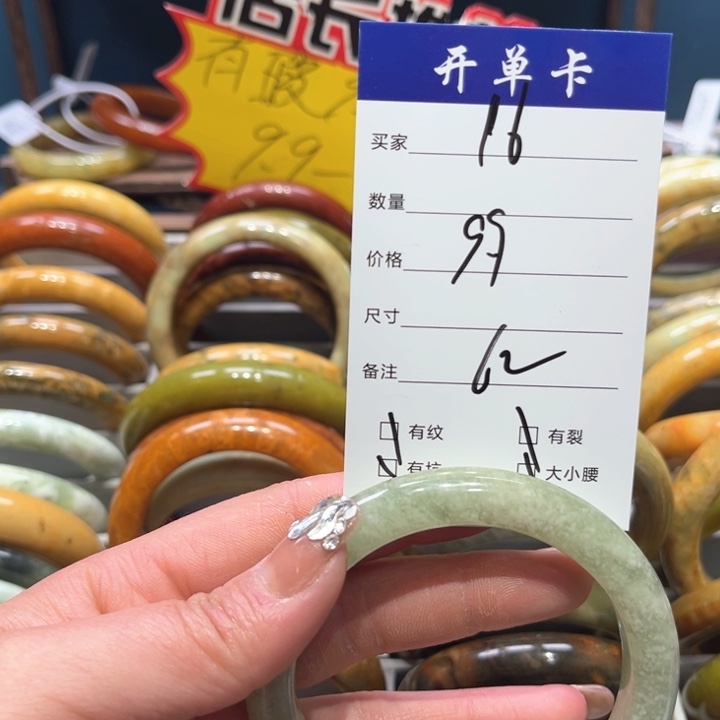 店长推
有瑕
99-
开单卡
买家 16
数量
价格 99
尺寸
备注 62
有纹 有裂
有坑 大小腰